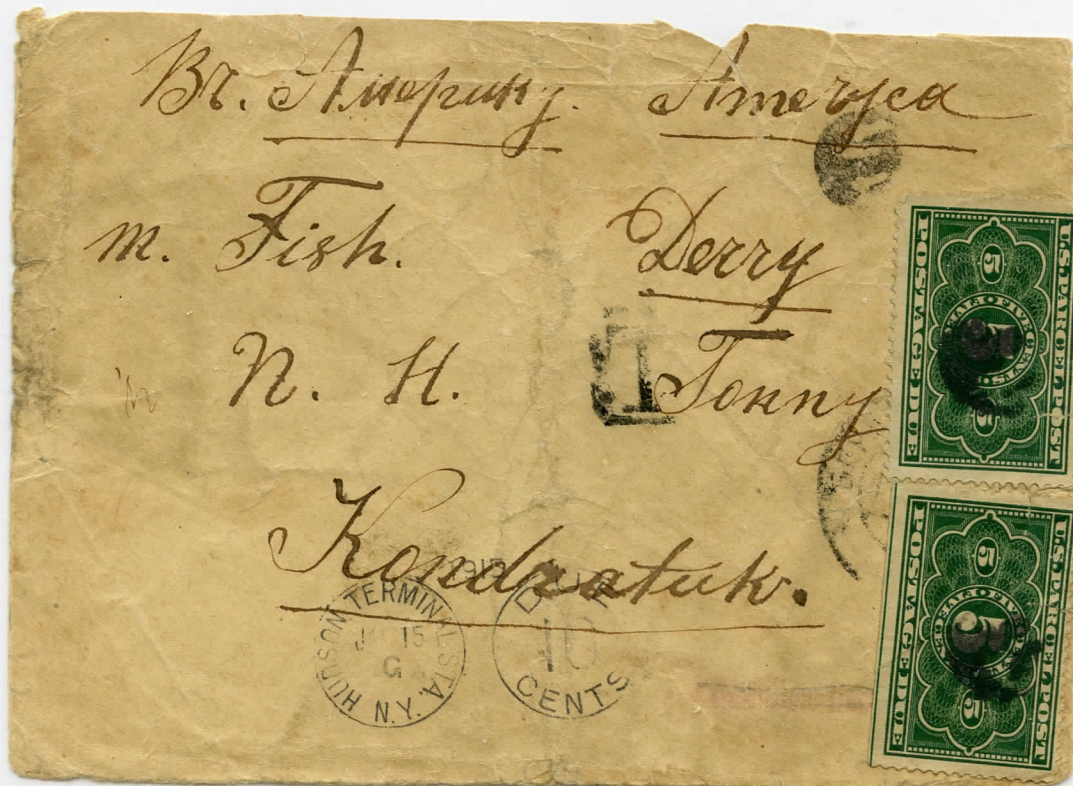 Въ. Америку. Ameryca
m. Fish. Derry
N. H. Гонну
Kondratuk.
T
HUDSON TERMINAL STA. N.Y.
15
G
DUE
10
CENTS
U.S. PARCEL POST
POSTAGE DUE
FIVE
5 5
5
U.S. PARCEL POST
POSTAGE DUE
FIVE
5 5
5